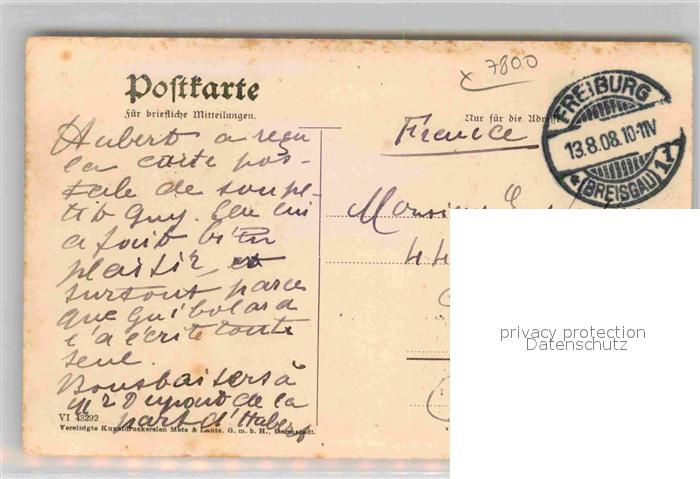 x 7800
Postkarte
Für briefliche Mitteilungen.
Nur für die Adresse
France
FREIBURG
13.8.08.10-11V
* (BREISGAU) 17
Hubert a reçu
la carte pos-
tale de son pe-
tit Guy. Cela lui
a fait bien
plaisir, et
surtout parce
que
l'a écrite toute
seul.
Bons baisers à
Mr Dupont de la
part d'Hubert
Monsieur
44
VI 43292
Vereinigte Kunstdruckereien Metz & Lautz, G. m. b. H., Darmstadt.
privacy protection
Datenschutz